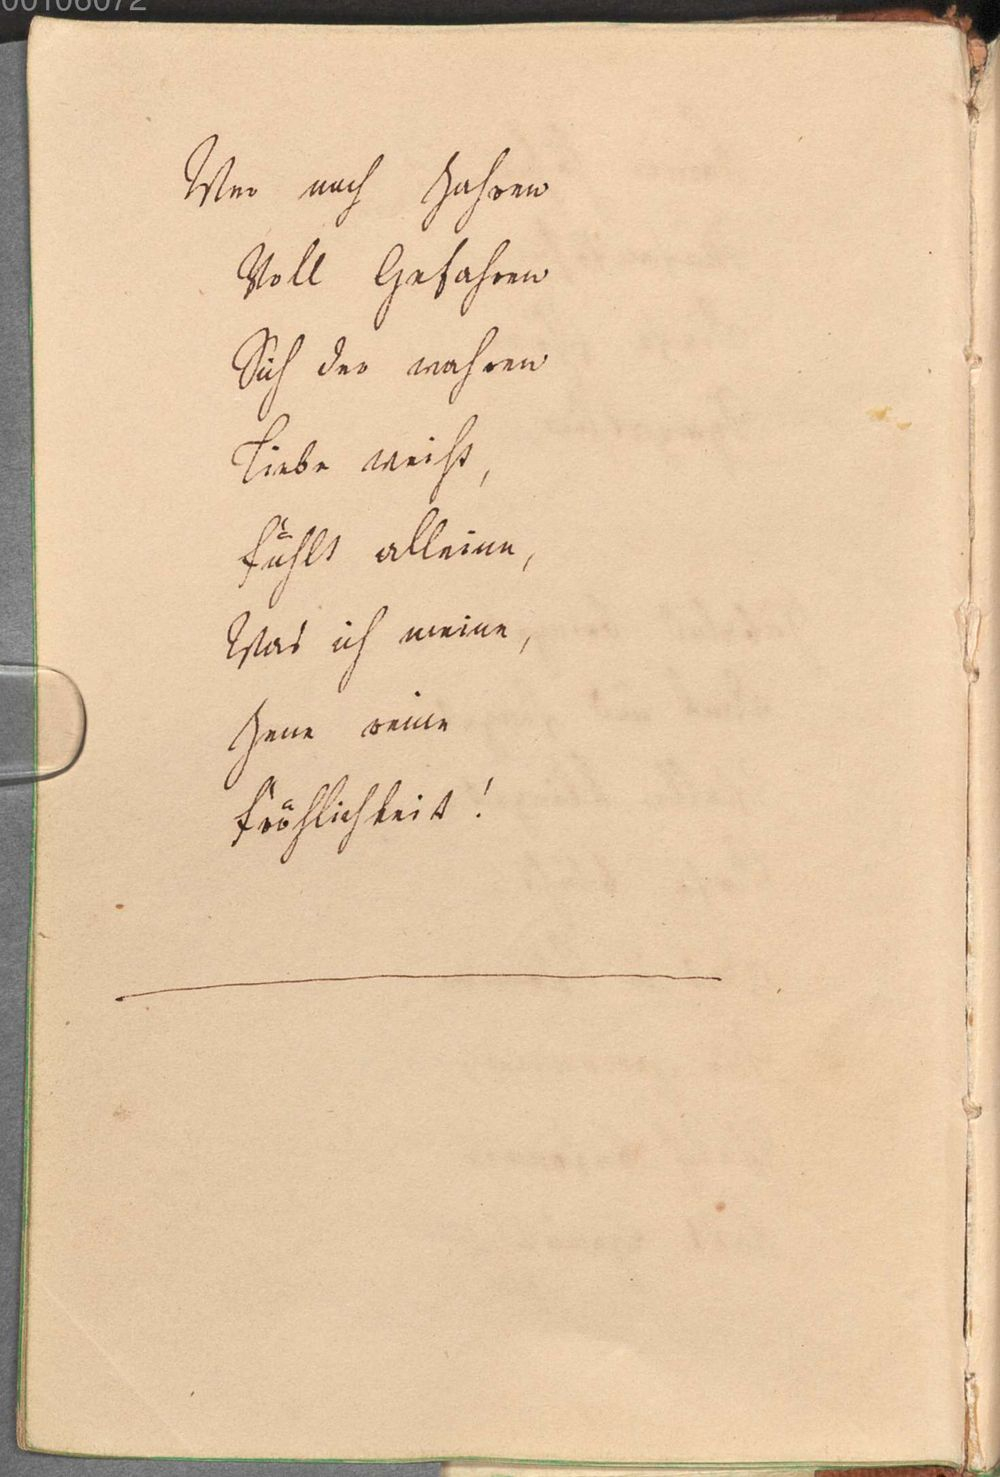 00106072
Wer nach Jahren
Voll Gefahren
Sich der wahren
Liebe weiht,
Fühlt alleine,
Was ich meine,
Jene reine
Fröhlichkeit!